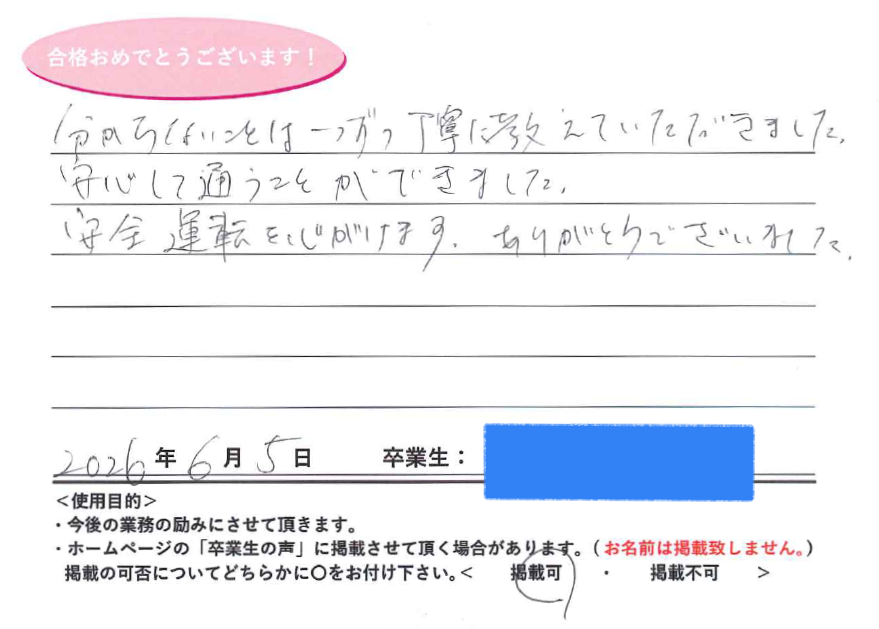 合格おめでとうございます！
分からないことは一つずつ丁寧に教えていただきました。
安心して通うことができました。
安全運転を心がけます。ありがとうございました。
2026年6月5日 卒業生：
＜使用目的＞
・今後の業務の励みにさせて頂きます。
・ホームページの「卒業生の声」に掲載させて頂く場合があります。（お名前は掲載致しません。）
掲載の可否についてどちらかに〇をお付け下さい。＜ 掲載可 ・ 掲載不可 ＞